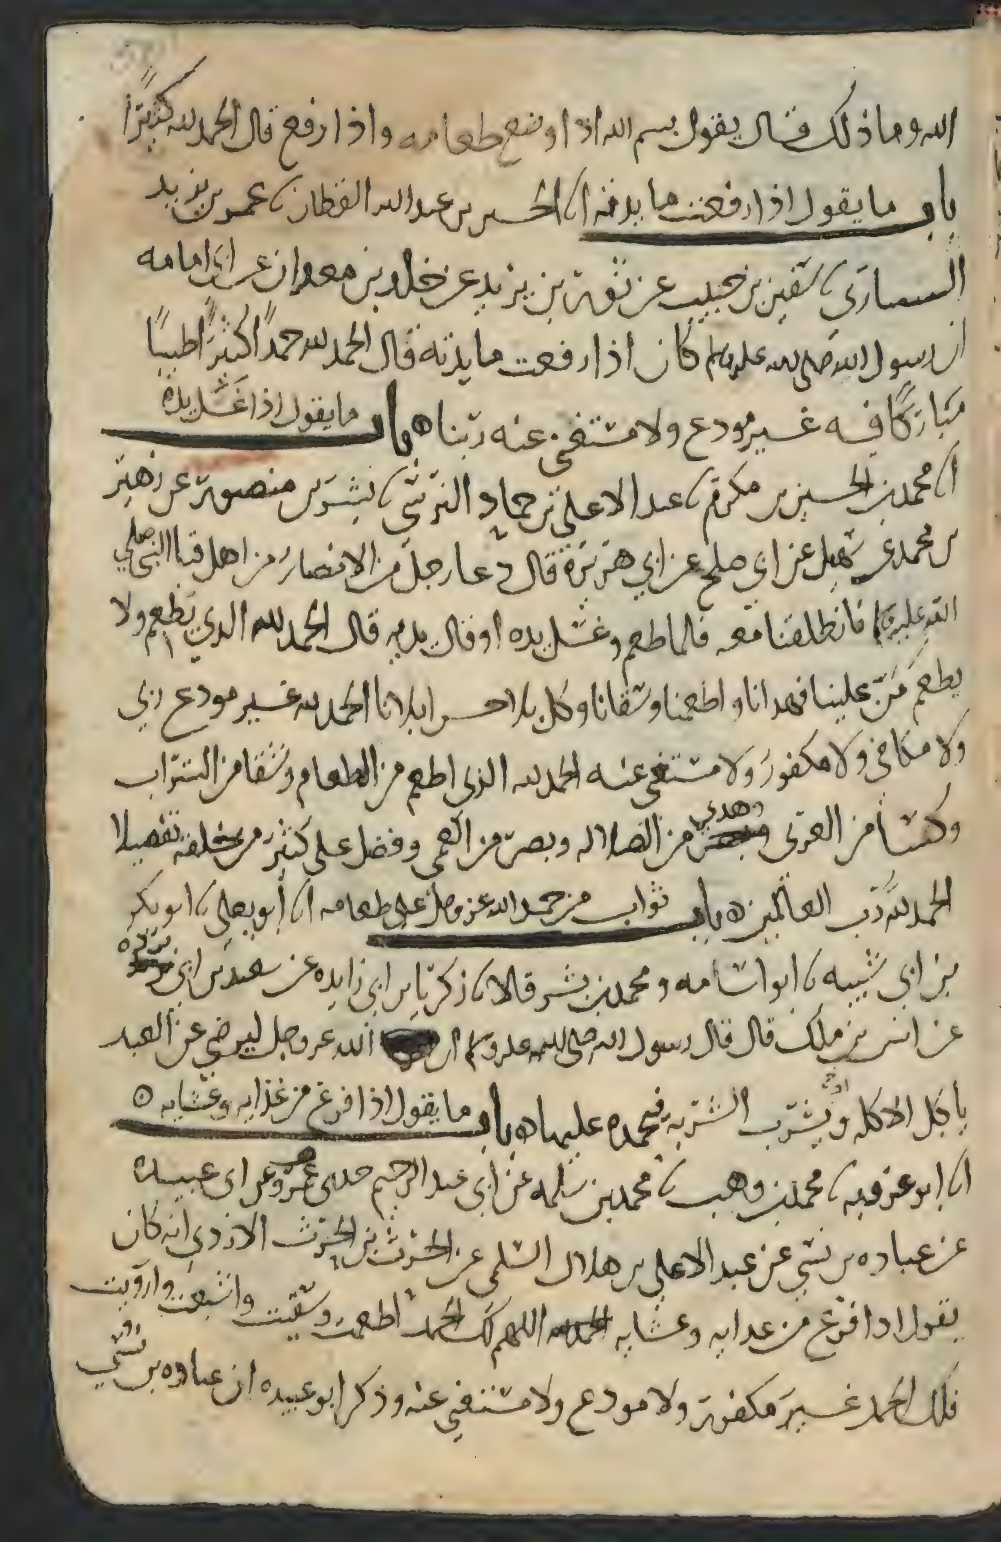 الله وما ذلك قال يقول بسم الله اذا وضع طعامه واذا رفع قال الحمد لله كثيرًا
باب ما يقول اذا رفعت مايدته انا الحسين بن عبد الله القطان نا عمرو بن يزيد
السيارى نا سفين بن حبيب عن ثور بن يزيد عن خلد بن معدان عن ابى امامه
ان رسول الله صلى الله عليه وسلم كان اذا رفعت مايدته قال الحمد لله حمدًا كثيرًا طيبًا
مباركًا فيه غير مودع ولا مستغنى عنه ربنا ه باب ما يقول اذا غسل يده
انا محمد بن الحسين بن مكرم نا عبد الاعلى بن حماد النرسي نا بشر بن منصور عن زهير
بن محمد عن سهيل عن ابي صلح عن ابي هريرة قال دعا رجل من الانصار من اهل قبا النبي صلى
الله عليه وسلم فانطلقنا معه فلما طعم وغسل يده او قال يديه قال الحمد لله الذي يطعم ولا
يطعم من علينا فهدانا واطعمنا وسقانا وكل بلا حسن ابلانا الحمد لله غير مودع ربي
ولا مكافى ولا مكفور ولا مستغنى عنه الحمد لله الذى اطعم من الطعام وسقا من الشراب
وكسا من العرى وهدى من الضلاله وبصر من العمى وفضل على كثير من خلقه تفضيلا
الحمد لله رب العالمين ه باب ثواب من حمد الله عز وجل على طعامه انا ابو يعلى نا ابو بكر
بن ابى شيبه نا ابو اسامه و محمد بن بشر قالا نا زكريا بن ابى زايده عن سعيد بن ابى برده
عن انس بن ملك قال قال رسول الله صلى الله عليه وسلم ان الله عز وجل ليرضى عن العبد
ياكل الاكله او يشرب الشربه فيحمده عليها ه باب ما يقول اذا فرغ من غذايه وعشايه ه
انا ابو عروبه نا محمد بن وهب نا محمد بن سلمه عن ابي عبد الرحيم حدثنى عمرو عن ابى عبيده
عن عباده بن نسي عن عبد الاعلى بن هلال السلمى عن الحرث بن الحرث الازدي انه كان
يقول اذا فرغ من غدايه وعشايه اللهم لك الحمد اطعمت وسقيت واشبعت وارويت
فلك الحمد غير مكفور ولا مودع ولا مستغنى عنه وذكر ابو عبيده ان عباده بن نسي